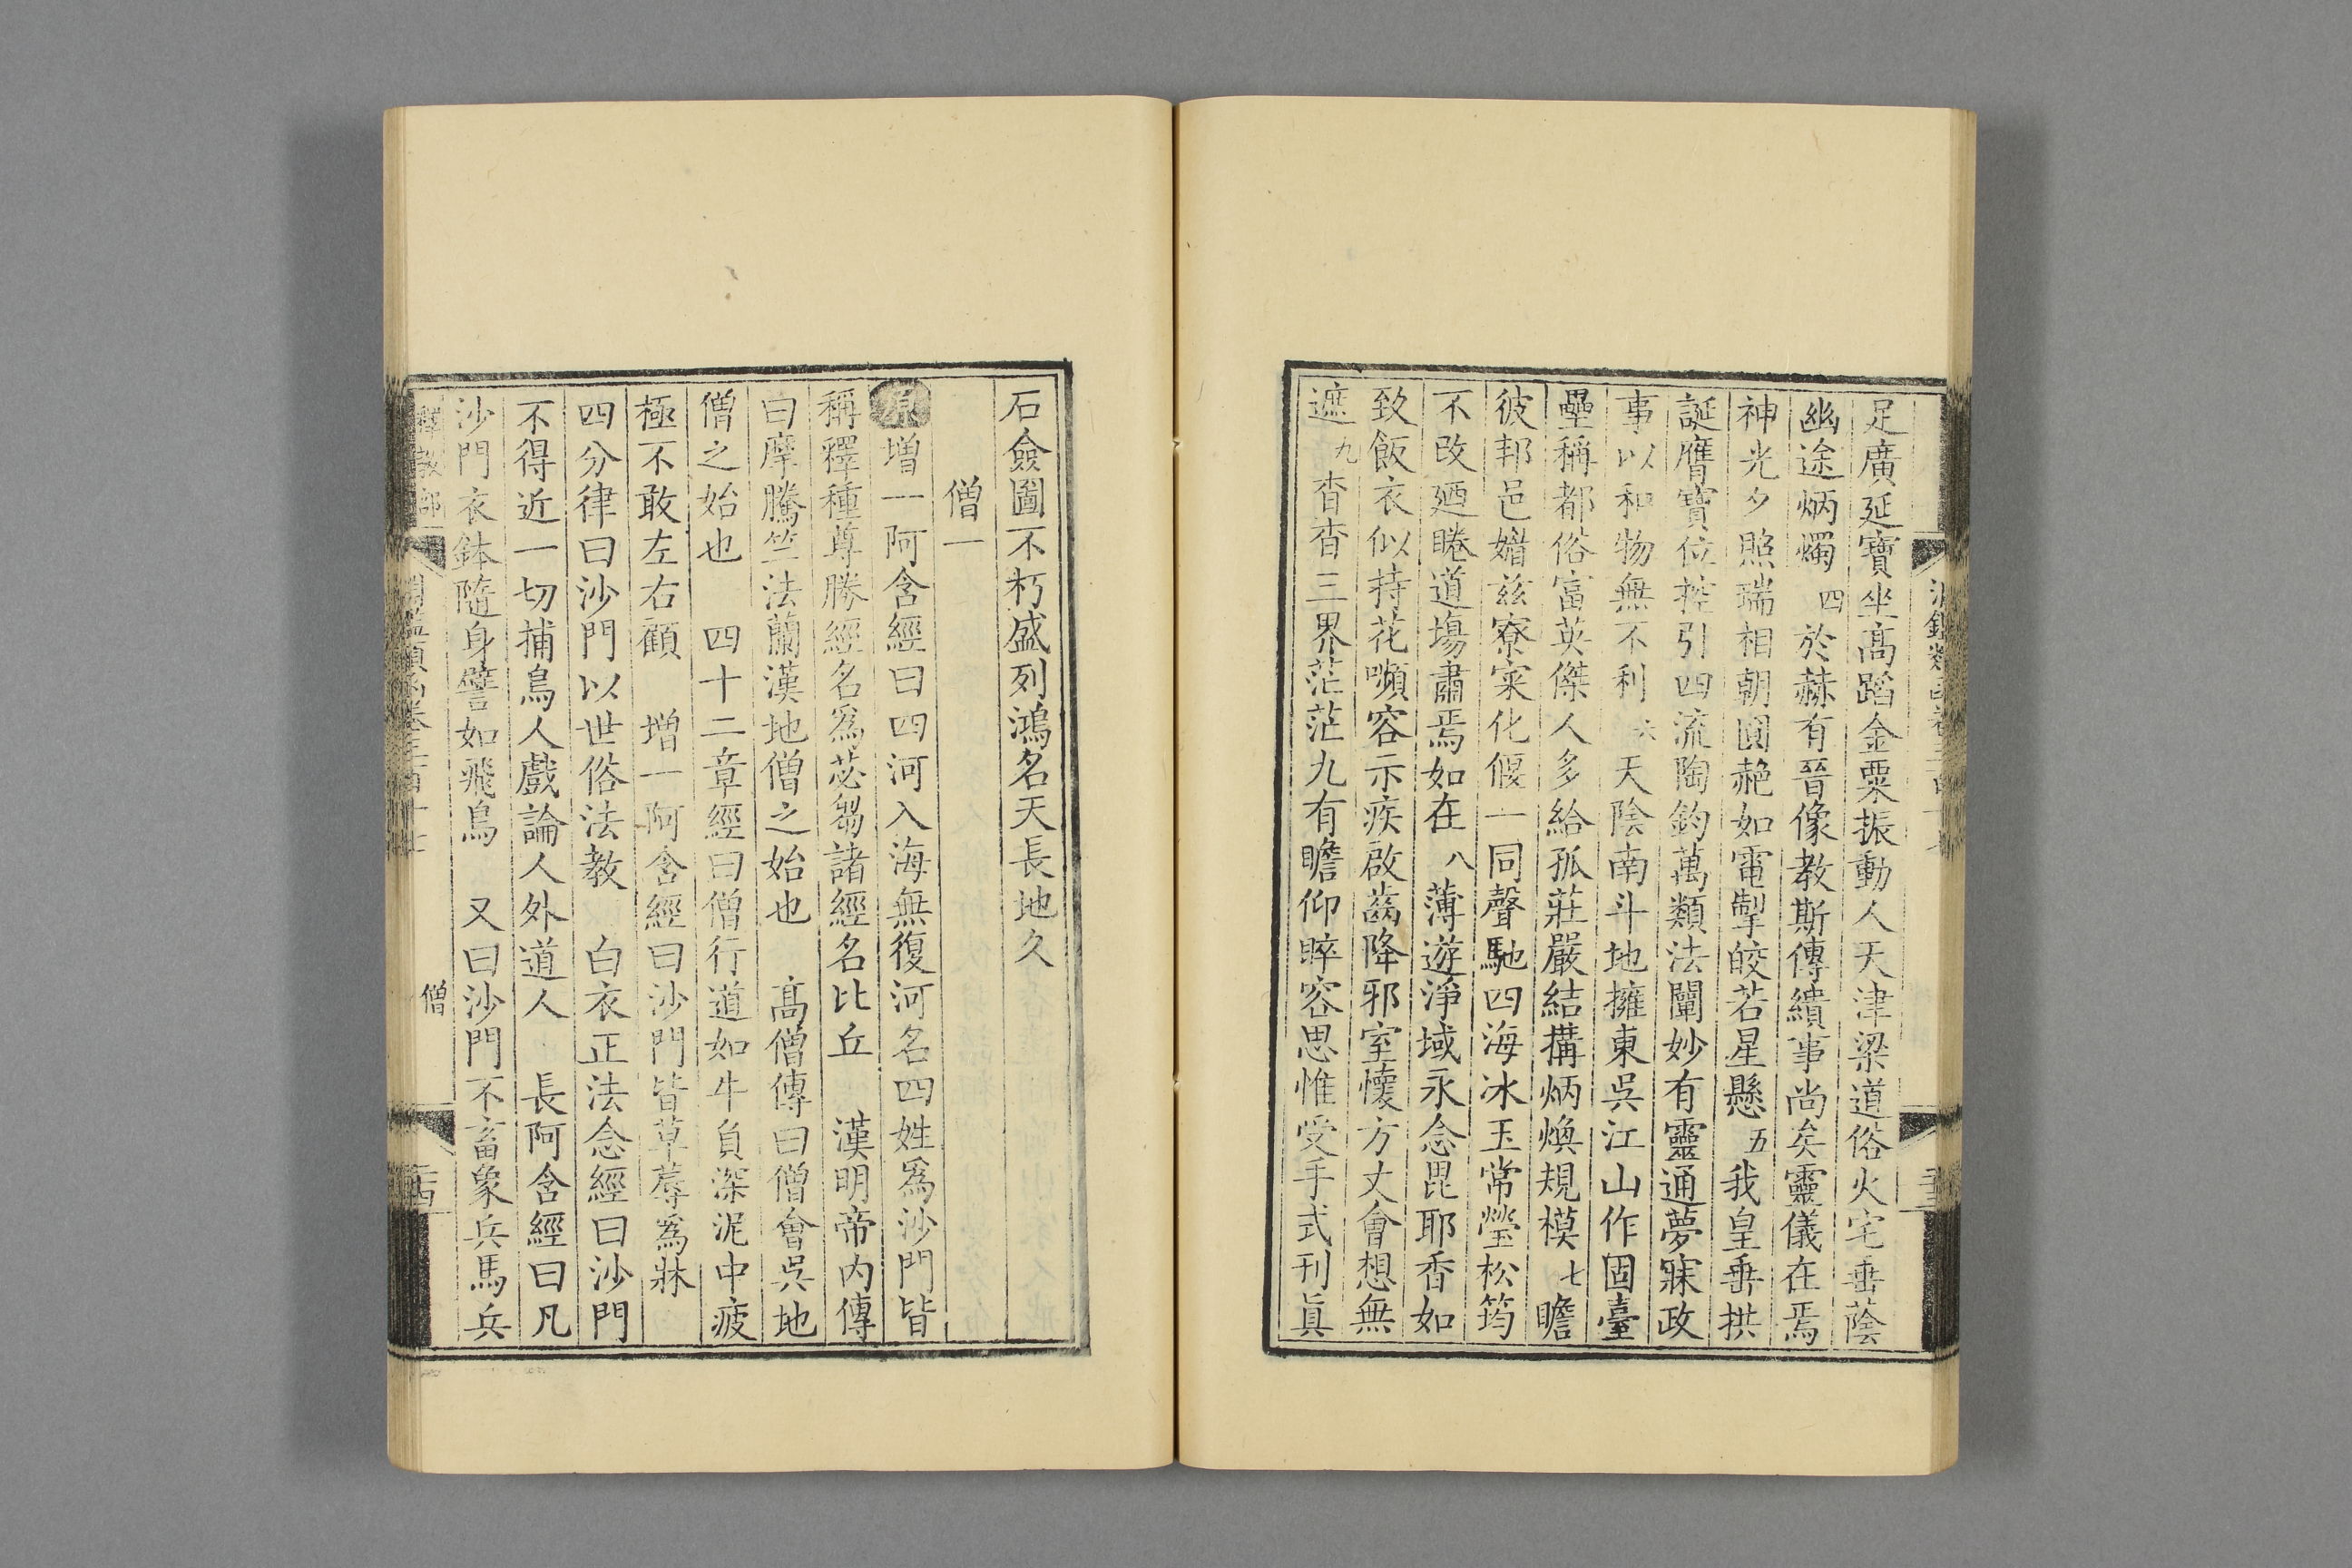 足廣延寶坐高蹈金粟振動人天津梁道俗火宅垂蔭
幽途炳燭 四 於赫有晉像教斯傳繢事尚矣靈儀在焉
神光夕照瑞相朝圓赩如電掣皎若星懸 五 我皇垂拱
誕膺寶位控引四流陶鈞萬類法闡妙有靈通夢寐政
事以和物無不利 六 天陰南斗地擁東吳江山作固臺
壘稱都俗富英傑人多給孤莊嚴結搆炳煥規模 七 瞻
彼邦邑嬉茲寮寀化偃一同聲馳四海冰玉常瑩松筠
不改廼睠道塲肅焉如在 八 薄遊淨域永念毘耶香如
致飯衣似持花嚬容示疾啟齒降邪室懷方丈會想無
遮 九 杳杳三界茫茫九有瞻仰睟容思惟受手式刊眞
石僉圖不朽盛列鴻名天長地久
僧一
原 增一阿含經曰四河入海無復河名四姓爲沙門皆
稱釋種尊勝經名爲苾芻諸經名比丘 漢明帝內傳
曰摩騰竺法蘭漢地僧之始也 高僧傳曰僧會吳地
僧之始也 四十二章經曰僧行道如牛負深泥中疲
極不敢左右顧 增一阿含經曰沙門皆草蓐爲牀
四分律曰沙門以世俗法教 白衣正法念經曰沙門
不得近一切捕鳥人戲論人外道人 長阿含經曰凡
沙門衣鉢隨身譬如飛鳥 又曰沙門不畜象兵馬兵
釋教部 淵鑑類函卷三百十七 僧